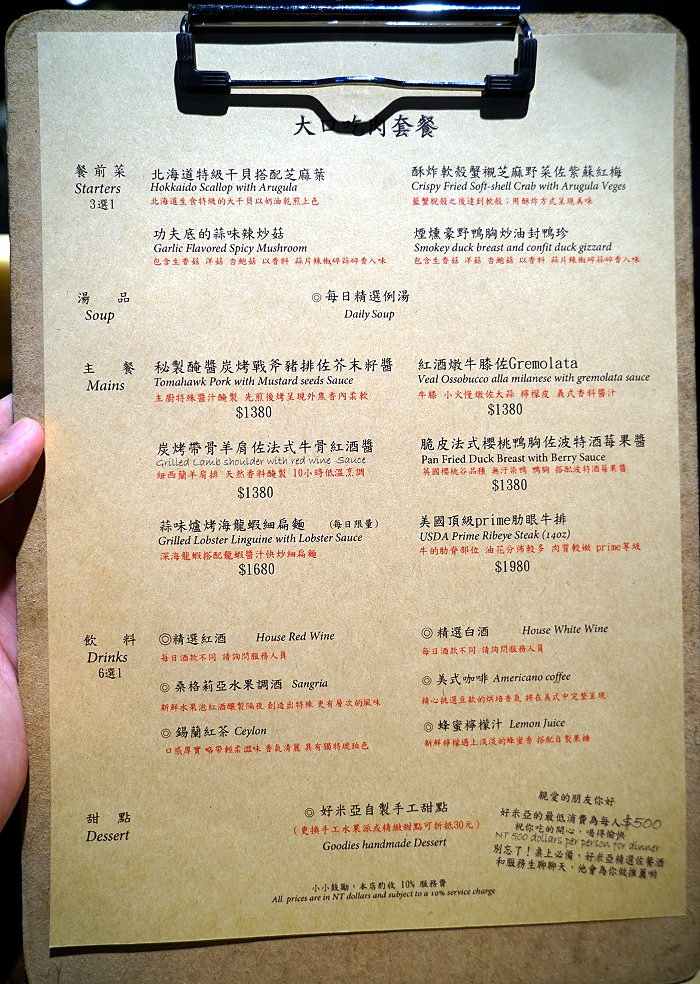 大口吃肉套餐
餐前菜
Starters
3選1
北海道特級干貝搭配芝麻葉
Hokkaido Scallop with Arugula
北海道生食特級的大干貝以奶油乾煎上色
酥炸軟殼蟹襯芝麻野菜佐紫蘇紅梅
Crispy Fried Soft-shell Crab with Arugula Veges
藍蟹脫殼之後達到軟殼；用酥炸方式呈現美味
功夫底的蒜味辣炒菇
Garlic Flavored Spicy Mushroom
包含生香菇 洋菇 杏鮑菇 以香料 蒜片辣椒碎蒜碎香入味
煙燻豪野鴨胸炒油封鴨珍
Smokey duck breast and confit duck gizzard
包含生香菇 洋菇 杏鮑菇 以香料 蒜片辣椒碎蒜碎香入味
湯品
Soup
◎每日精選例湯
Daily Soup
主餐
Mains
秘製醃醬炭烤戰斧豬排佐芥末籽醬
Tomahawk Pork with Mustard seeds Sauce
主廚特殊醬汁醃製 先煎後烤呈現外焦香內柔軟
$1380
紅酒燉牛膝佐Gremolata
Veal Ossobucco alla milanese with gremolata sauce
牛膝 小火慢燉佐大蒜 檸檬皮 義式香料醬汁
$1380
炭烤帶骨羊肩佐法式牛骨紅酒醬
Grilled Lamb shoulder with red wine Sauce
紐西蘭羊肩排 天然香料醃製 10小時低溫烹調
$1380
脆皮法式櫻桃鴨胸佐波特酒莓果醬
Pan Fried Duck Breast with Berry Sauce
英國櫻桃谷品種 無汙染鴨 鴨胸 搭配波特酒莓果醬
$1380
蒜味爐烤海龍蝦細扁麵 (每日限量)
Grilled Lobster Linguine with Lobster Sauce
深海龍蝦搭配龍蝦醬汁快炒細扁麵
$1680
美國頂級prime肋眼牛排
USDA Prime Ribeye Steak (14oz)
牛的肋脊部位 油花分佈較多 肉質較嫩 prime等級
$1980
飲料
Drinks
6選1
◎精選紅酒 House Red Wine
每日酒款不同 請詢問服務人員
◎精選白酒 House White Wine
每日酒款不同 請詢問服務人員
◎桑格莉亞水果調酒 Sangria
新鮮水果泡紅酒釀製隔夜 創造出特殊 更有層次的風味
◎美式咖啡 Americano coffee
精心挑選豆款的烘培香氣 將在美式中完整呈現
◎錫蘭紅茶 Ceylon
口感厚實 略帶輕柔澀味 香氣清麗 具有獨特琥珀色
◎蜂蜜檸檬汁 Lemon Juice
新鮮檸檬遇上淡淡的蜂蜜香 搭配自製果糖
甜點
Dessert
◎好米亞自製手工甜點
(更換手工水果派或精緻甜點可折抵30元)
Goodies handmade Dessert
親愛的朋友你好
好米亞的最低消費為每人$500
祝你吃的開心，喝得愉快
NT 500 dollars per person for dinner
別忘了！桌上必備，好米亞精選佐餐酒
和服務生聊聊天，他會為你做推薦喲
小小鼓勵，本店酌收 10% 服務費
All prices are in NT dollars and subject to a 10% service charge